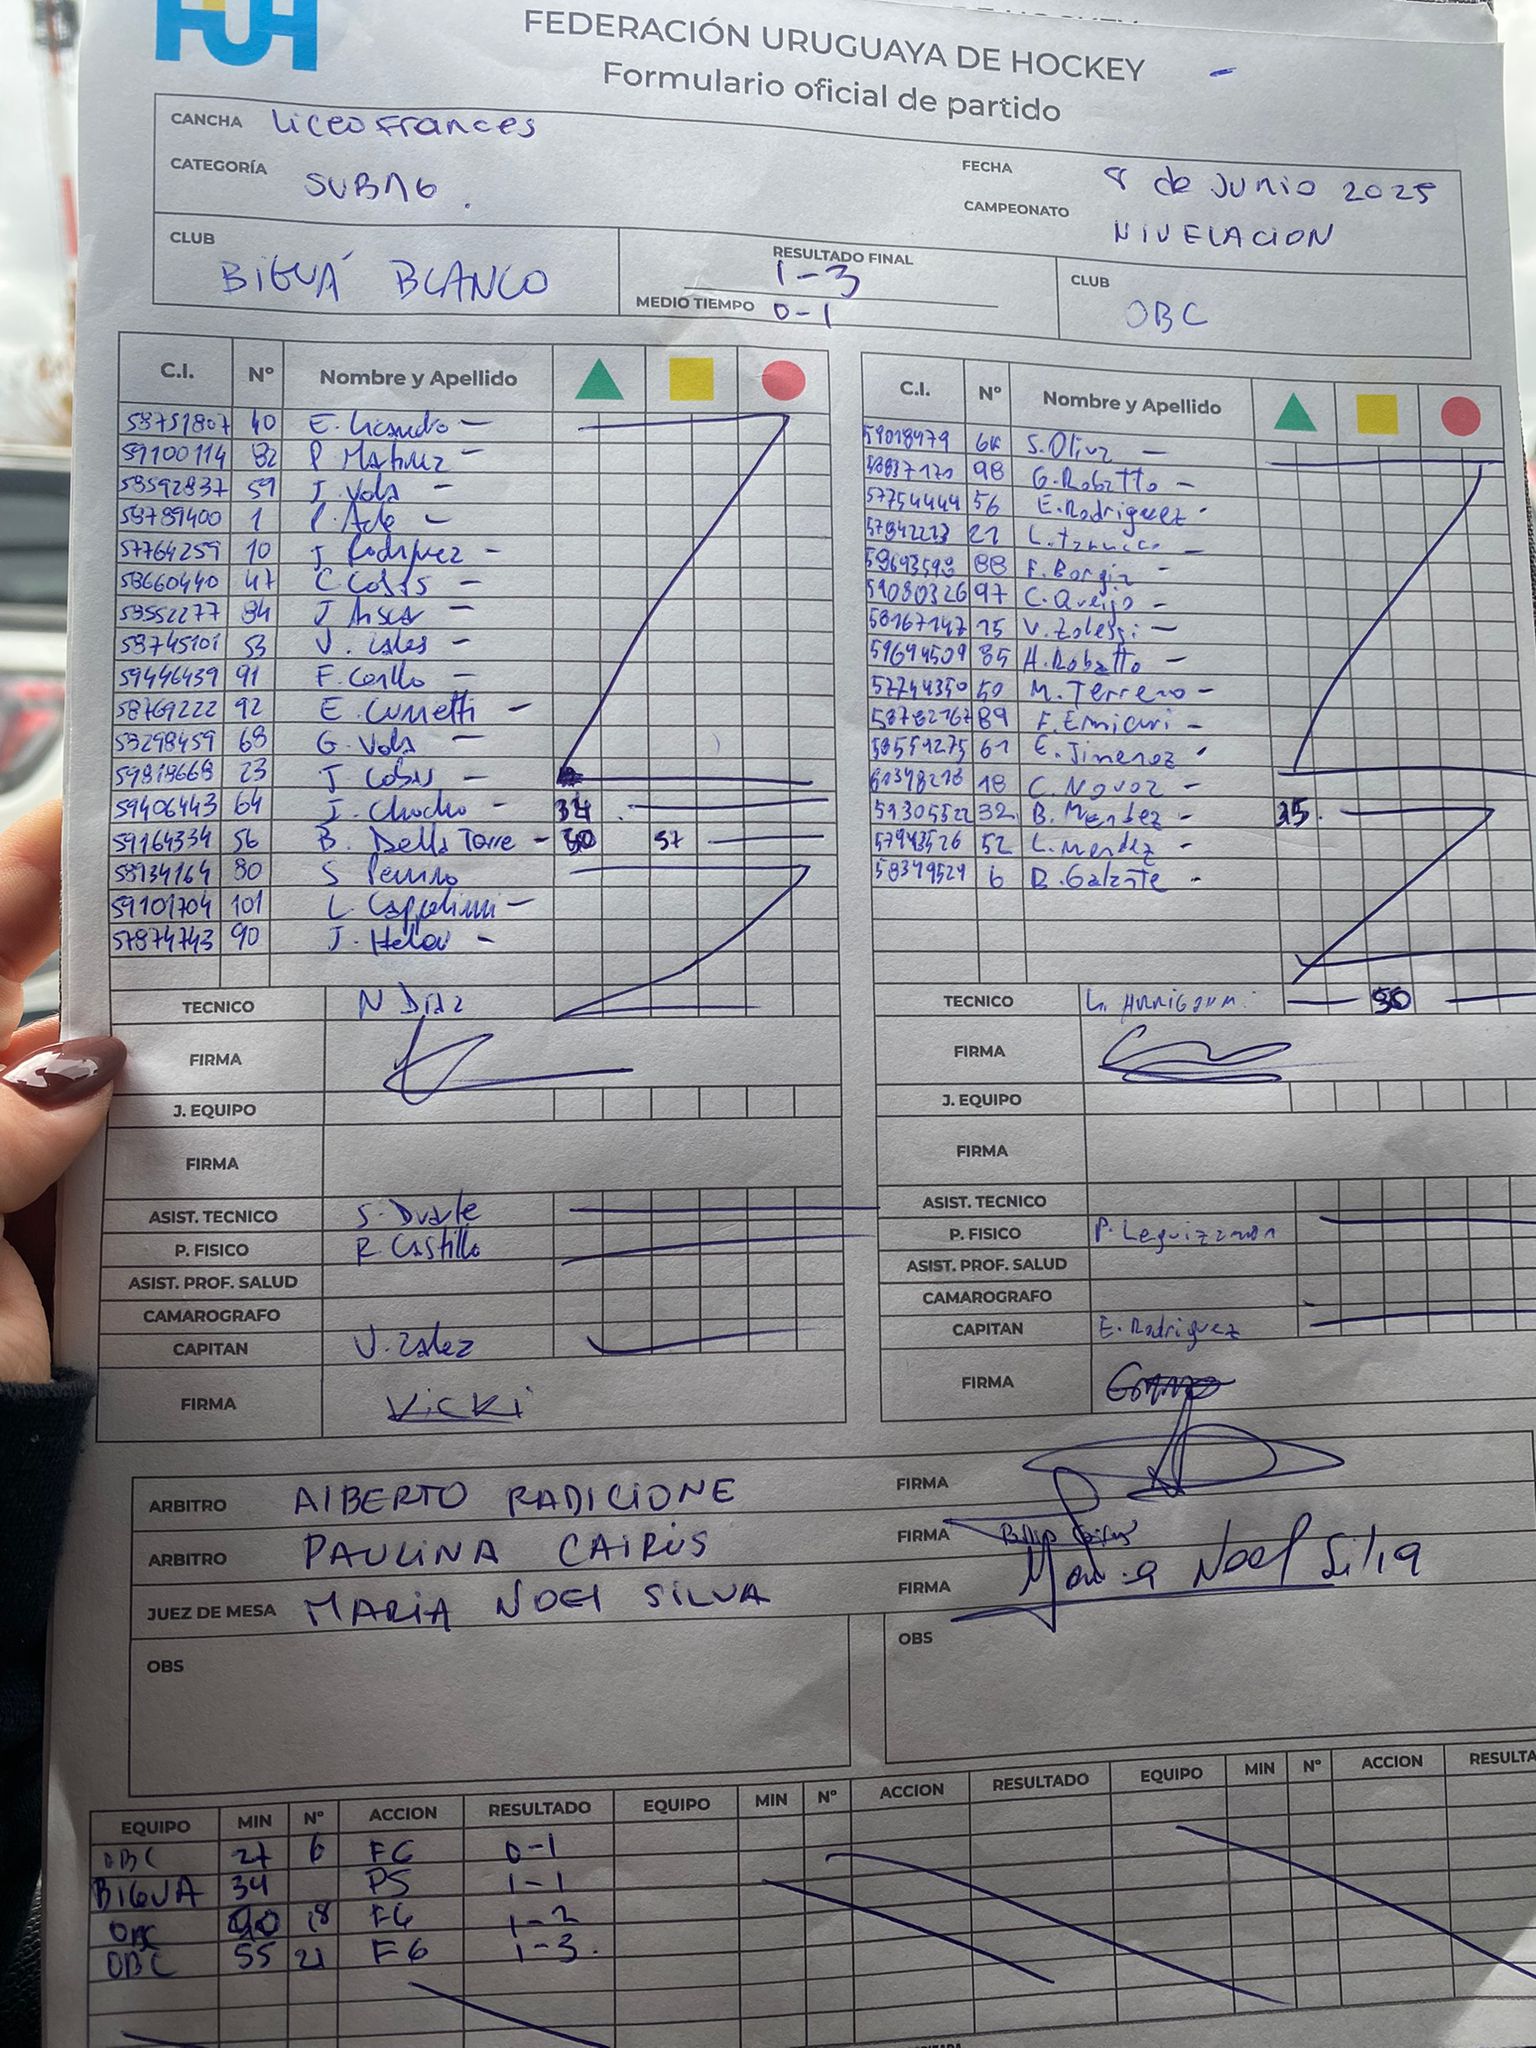 FUH
FEDERACIÓN URUGUAYA DE HOCKEY
Formulario oficial de partido
CANCHA Liceo Frances
CATEGORÍA SUB16.
FECHA 8 de Junio 2025
CAMPEONATO NIVELACION
CLUB BIGUÁ BLANCO
RESULTADO FINAL 1-3
MEDIO TIEMPO 0-1
CLUB OBC
C.I. Nº Nombre y Apellido
58751807 40 E.
59100114 82 P.
58592837 59 J. Vola
58789400 1
57764259 10 J. Rodriguez
58660440 47 C.
58552277 84 J.
58745101 53 V.
59446439 91 F.
58769222 92 E.
58298459 68 G. Vola
59818668 23 J.
59406443 64 J. Chocho 34
59164334 56 B. Della Torre 50 57
58134164 80 S.
59101704 101 L.
57874743 90 J.
TECNICO N Diaz
FIRMA
J. EQUIPO
FIRMA
ASIST. TECNICO S. Duarte
P. FISICO R. Castillo
ASIST. PROF. SALUD
CAMAROGRAFO
CAPITAN V.
FIRMA Vicki
C.I. Nº Nombre y Apellido
59018979 S. Oliva
98 G. Robatto
57754444 56 E. Rodriguez
57842223 21 L.
58693598 88 F. Borgia
59080326 97 C. Queijo
58167147 15 V. Zolessi
59694509 85 H. Robatto
57744350 50 M. Terreno
58782167 89 F.
58551275 61 E. Jimenez
18 C. Novoa
59305522 32 B. Mendez 35
57943526 52 L. Mendez
58349529 6 B. Galante
TECNICO L. 50
FIRMA
J. EQUIPO
FIRMA
ASIST. TECNICO
P. FISICO P. Leguizamon
ASIST. PROF. SALUD
CAMAROGRAFO
CAPITAN E. Rodriguez
FIRMA
ARBITRO ALBERTO RADICIONE FIRMA
ARBITRO PAULINA CAIRUS FIRMA
JUEZ DE MESA MARIA NOEL SILVA FIRMA Maria Noel Silva
OBS
OBS
EQUIPO MIN Nº ACCION RESULTADO EQUIPO MIN Nº ACCION RESULTADO EQUIPO MIN Nº ACCION RESULTA
OBC 27 6 FG 0-1
BIGUA 34 PS 1-1
OBC 40 18 FG 1-2
OBC 55 21 FG 1-3.